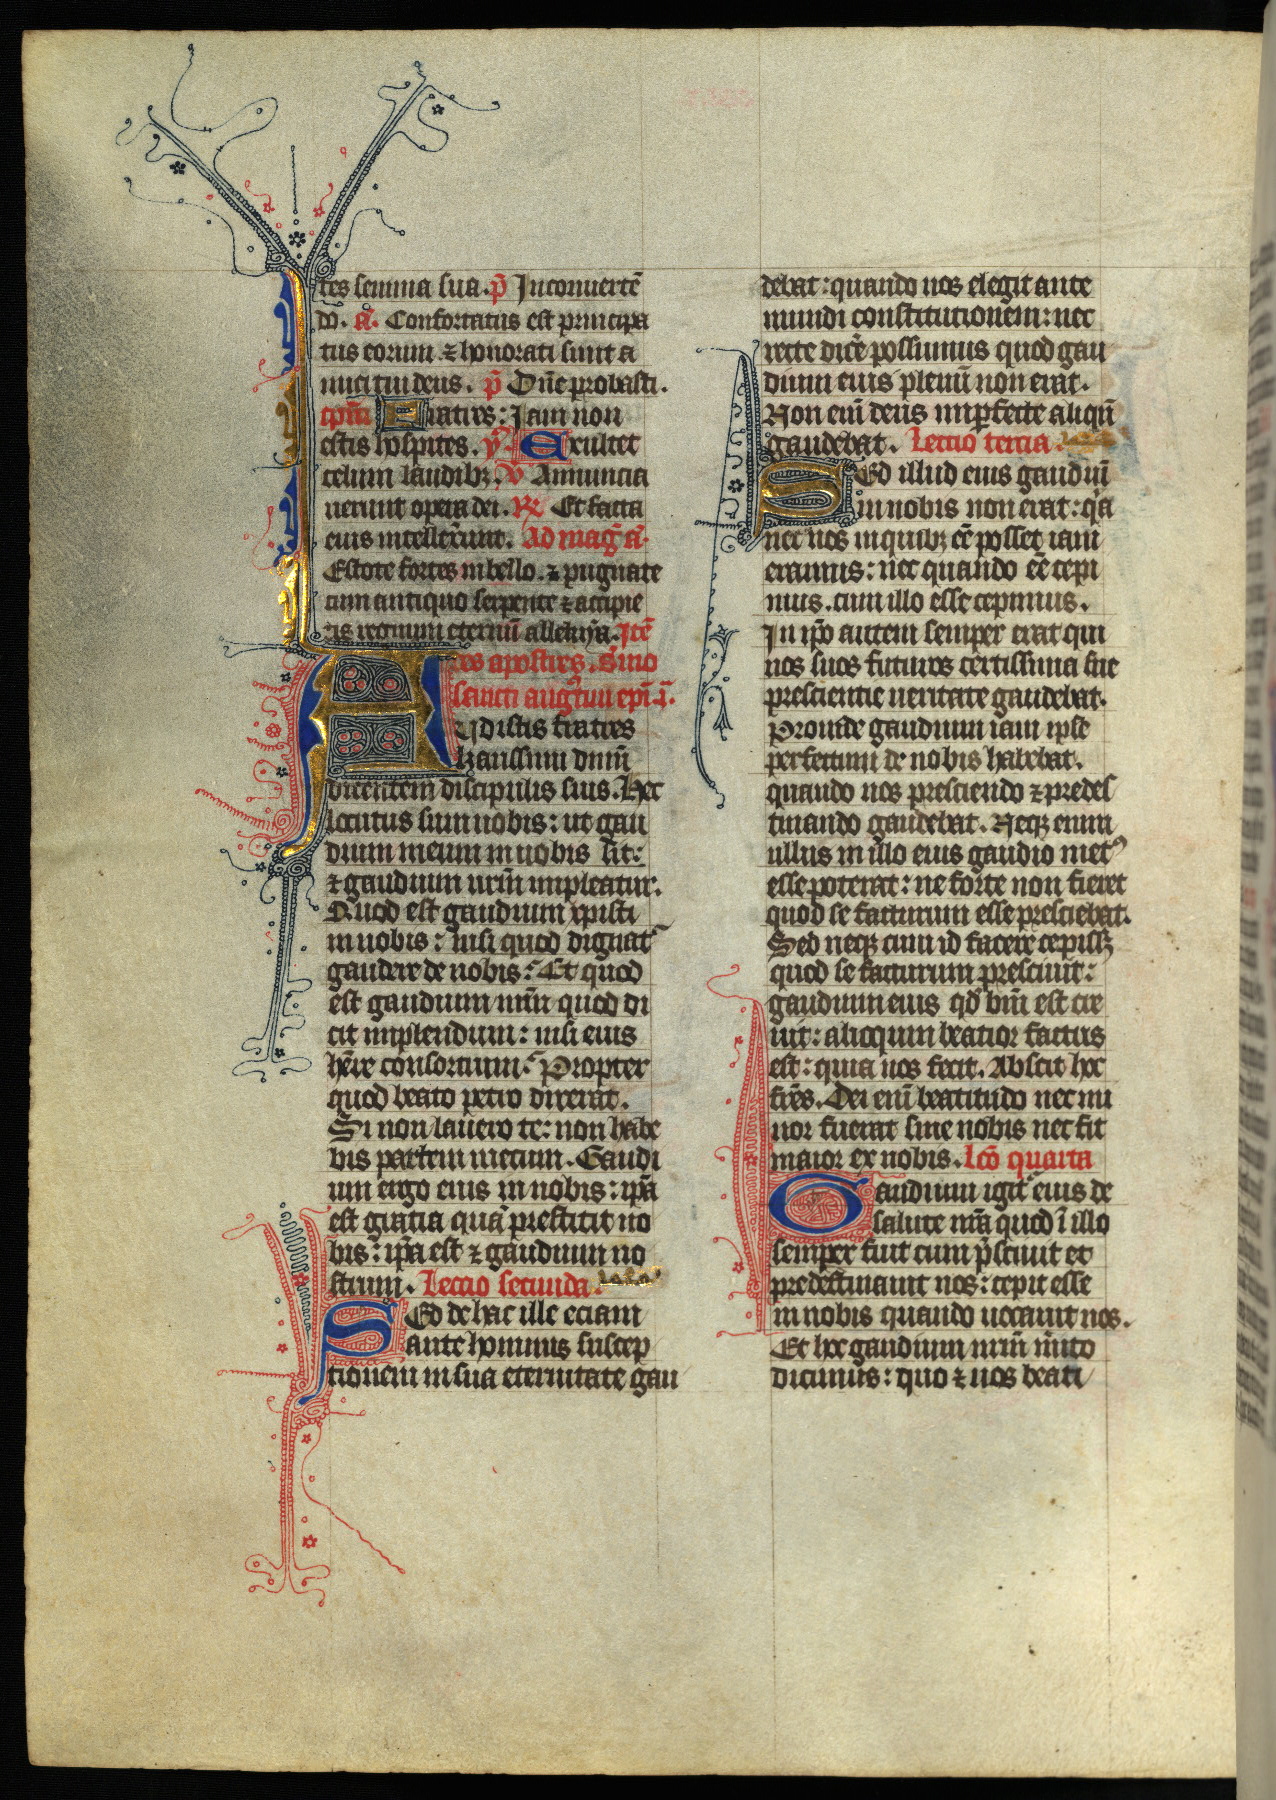 tes semina sua. p̄ In conuertē
do. a͞. Confortatus est principa
tus eorum ⁊ honorati sunt a
mici tui deus. p̄ Dn̄e probasti.
cplm̄ Fratres: Iam non
estis hospites. ym̄. Exultet
celum laudibꝫ. v̄ Annuncia
uerunt opera dei. ℟ Et facta
eius intellexerunt. Ad maḡ a͞.
Estote fortes in bello. ⁊ pugnate
cum antiquo serpente ⁊ accipie
tis regnum eternū alleluya. Itē
es apostles. Sm̄o
sancti augustini ep̄i. i.
Udistis fratres
karissimi dn̄m
dicentem discipulis suis. Hec
locutus sum uobis: ut gau
dium meum in uobis sit:
⁊ gaudium ur̄m impleatur.
Quod est gaudium xpisti
in uobis: nisi quod dignatᷣ
gaudere de nobis: Et quod
est gaudium nr̄m quod di
cit implendum: nisi eius
hēre consortium: Propter
quod beato petro dixerat.
Si non lauero te: non habe
bis partem mecum. Gaudi
um ergo eius in nobis: ip̄a
est gratia quā prestitit no
bis: ip̄a est ⁊ gaudium no
strum. Lectio secunda.
Sed de hac ille eciam
ante hominis suscep
tionem in sua eternitate gau
debat: quando nos elegit ante
mundi constitutionem: nec
recte dicē possumus quod gau
dium eius plenū non erat.
Non enī deus imperfecte aliqn̄
gaudebat. Lectio tercia.
Sed illud eius gaudiū
in nobis non erat: qꝛa
nec nos in quibꝫ eē posset iam
eramus: nec quando eē cepi
mus. cum illo esse cepimus.
In ip̄o autem semper erat qui
nos suos futuros certissima sue
prescientie ueritate gaudebat.
Proinde gaudium iam ipse
perfectum de nobis habebat.
quando nos presciendo ⁊ predes
tinando gaudebat. Neqꝫ enim
ullus in illo eius gaudio metꝰ
esse poterat: ne forte non fieret
quod se facturum esse presciebat.
Sed neqꝫ cum id facere cepissꝫ
quod se facturum presciuit:
gaudium eius qd̄ bm̄ est cre
uit: alioquin beatior factus
est: quia nos fecit. Absit hoc
fr̄es. Dei enī beatitudo nec mi
nor fuerat sine nobis nec fit
maior ex nobis. Lcō quarta
Gaudium igitᷣ eius de
salute nr̄a quod ī illo
semper fuit cum p̄sciuit et
predestinauit nos: cepit esse
in nobis quando uocauit nos.
Et hoc gaudium nr̄m m̄ito
dicimus: quo ⁊ nos beati